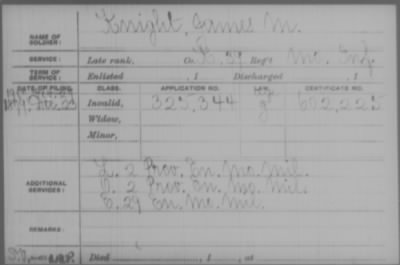 Knight, James M.
NAME OF SOLDIER:
SERVICE: Late rank, Co. K, 39 Reg't Mo. Inf.
TERM OF SERVICE: Enlisted , 1 Discharged , 1
DATE OF FILING. CLASS. APPLICATION NO. LAW. CERTIFICATE NO.
Dec. 23 Invalid, 325,344 602,225
Widow,
Minor,
ADDITIONAL SERVICES:
2 Prov. En. Mo. Mil.
2 Prov. En. Mo. Mil.
En. Mo. Mil.
REMARKS:
Died , 1 , at